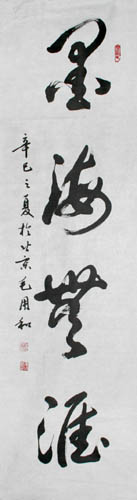 墨海無涯
辛巳之夏於北京毛國和